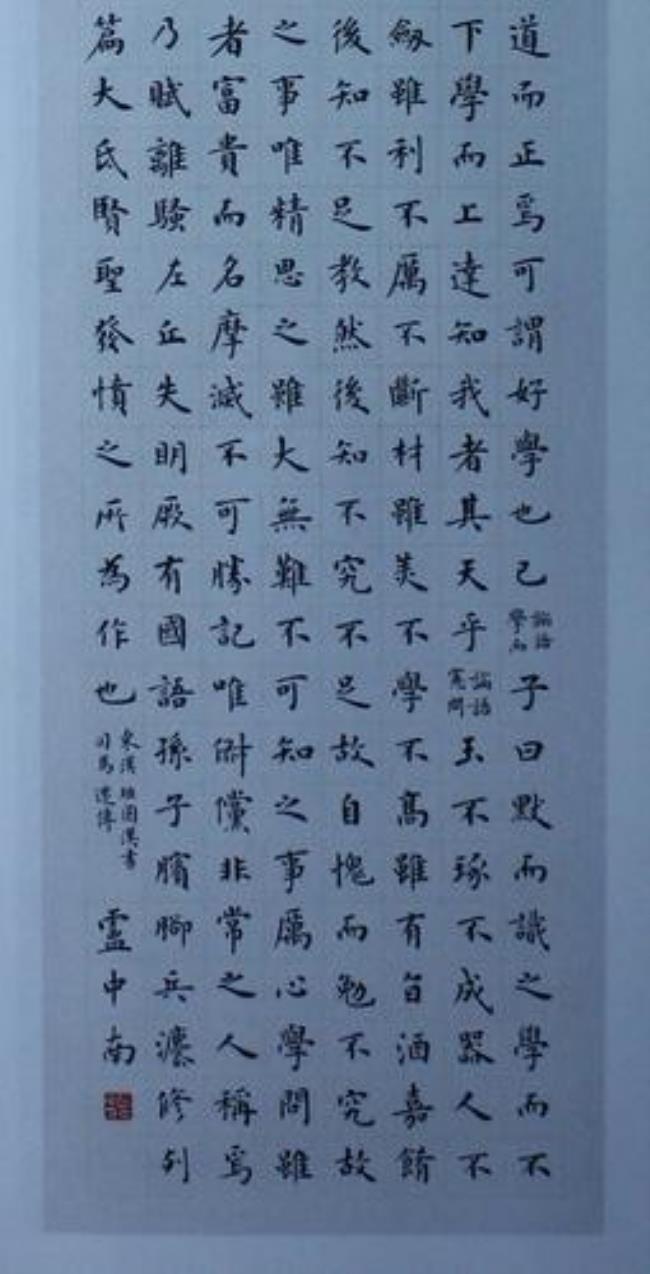 道而正焉可謂好學也已 論語學而 子曰默而識之學而不
下學而上達知我者其天乎 論語憲問 玉不琢不成器人不
劔雖利不厲不斷材雖美不學不高雖有旨酒嘉餚
後知不足教然後知不究不足故自愧而勉不究故
之事唯精思之雖大無難不可知之事厲心學問雖
者富貴而名摩滅不可勝記唯俶儻非常之人稱焉
乃賦離騷左丘失明厥有國語孫子臏腳兵灋修列
篇大氐賢聖發憤之所為作也 東漢班固漢書司馬遷傳 盧中南